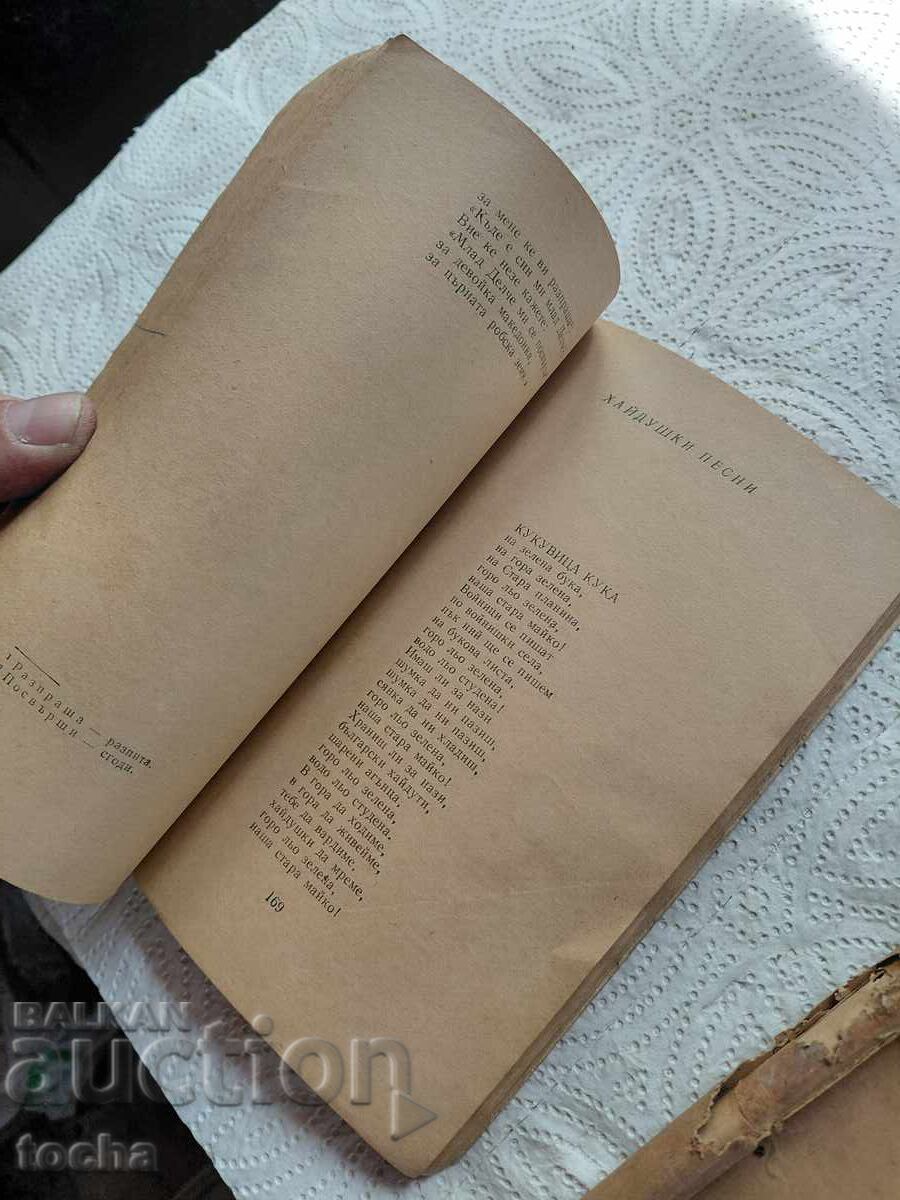 за мене ке ви разпраша:
«Къде е син ми млад
Вие ке незе кажете:
«Млад Делче ми се
за девойка македонка,
за църната робска
1 Разпраша — разпита.
Посвърши — сгоди.
ХАЙДУШКИ ПЕСНИ
КУКУВИЦА КУКА
на зелена бука,
на гора зелена,
на Стара планина,
горо льо зелена,
наша стара майко!
Войници се пишат
по войнишки села,
пък ний ще се пишем
на букова листа,
горо льо зелена,
водо льо студена!
Имаш ли за нази
шумка да ни пазиш,
шумка да ни пазиш,
сянка да ни хладиш,
горо льо зелена,
наша стара майко!
Храниш ли за нази,
български хайдути,
шарени агънца,
горо льо зелена,
водо льо студена.
В гора да ходиме,
в гора да живейме,
тебе да вардиме,
хайдушки да мреме,
горо льо зелена,
наша стара майко!
169
BALKAN
auction
tocha